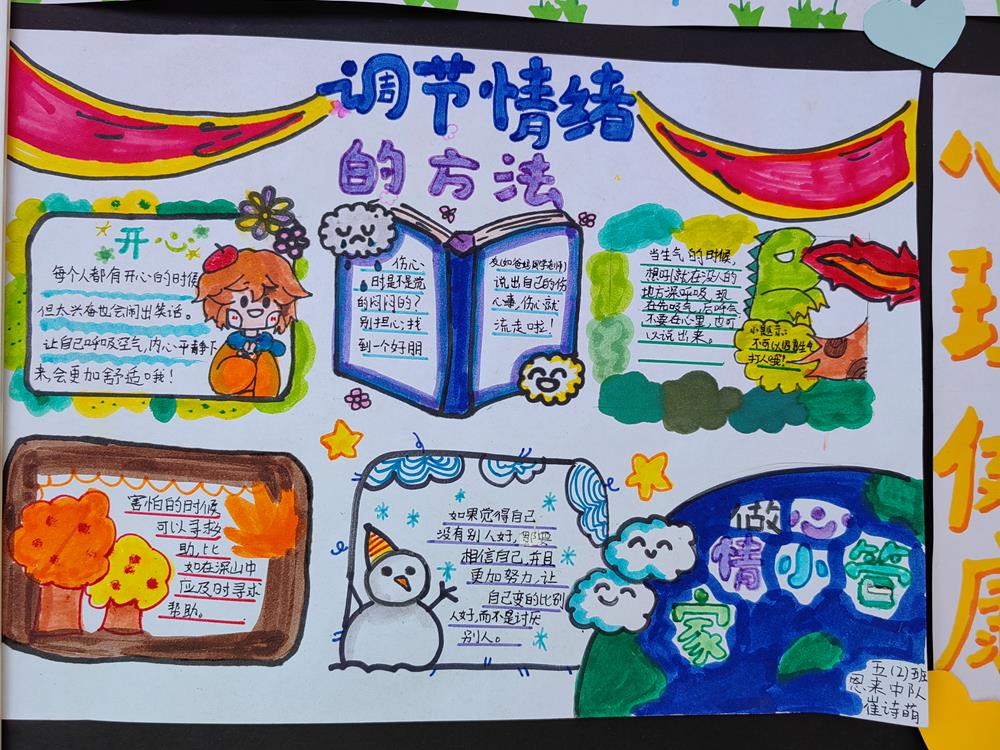 调节情绪
的方法
开心
每个人都有开心的时候
但太兴奋也会闹出笑话。
让自己呼吸空气,内心平静下
来,会更加舒适哦!
伤心
时是不是觉
的闷闷的?
别担心,找
到一个好朋
友(如爸妈同学老师)
说出自己的伤
心事,伤心就
流走啦!
当生气的时候,
想好就在没人的
地方深呼吸,现
在先吸气,后呼气
不要在心里,也可
以说出来。
小提示:
不可以随意
打人哦!
害怕的时候
可以寻求
助,比
如在深山中
应及时寻求
帮助。
如果觉得自己
没有别人好,那要
相信自己,并且
更加努力,让
自己变的比别
人好,而不是讨厌
别人。
做
情小管
家
五(2)班
恩来中队
崔诗萌
心
理
健
康